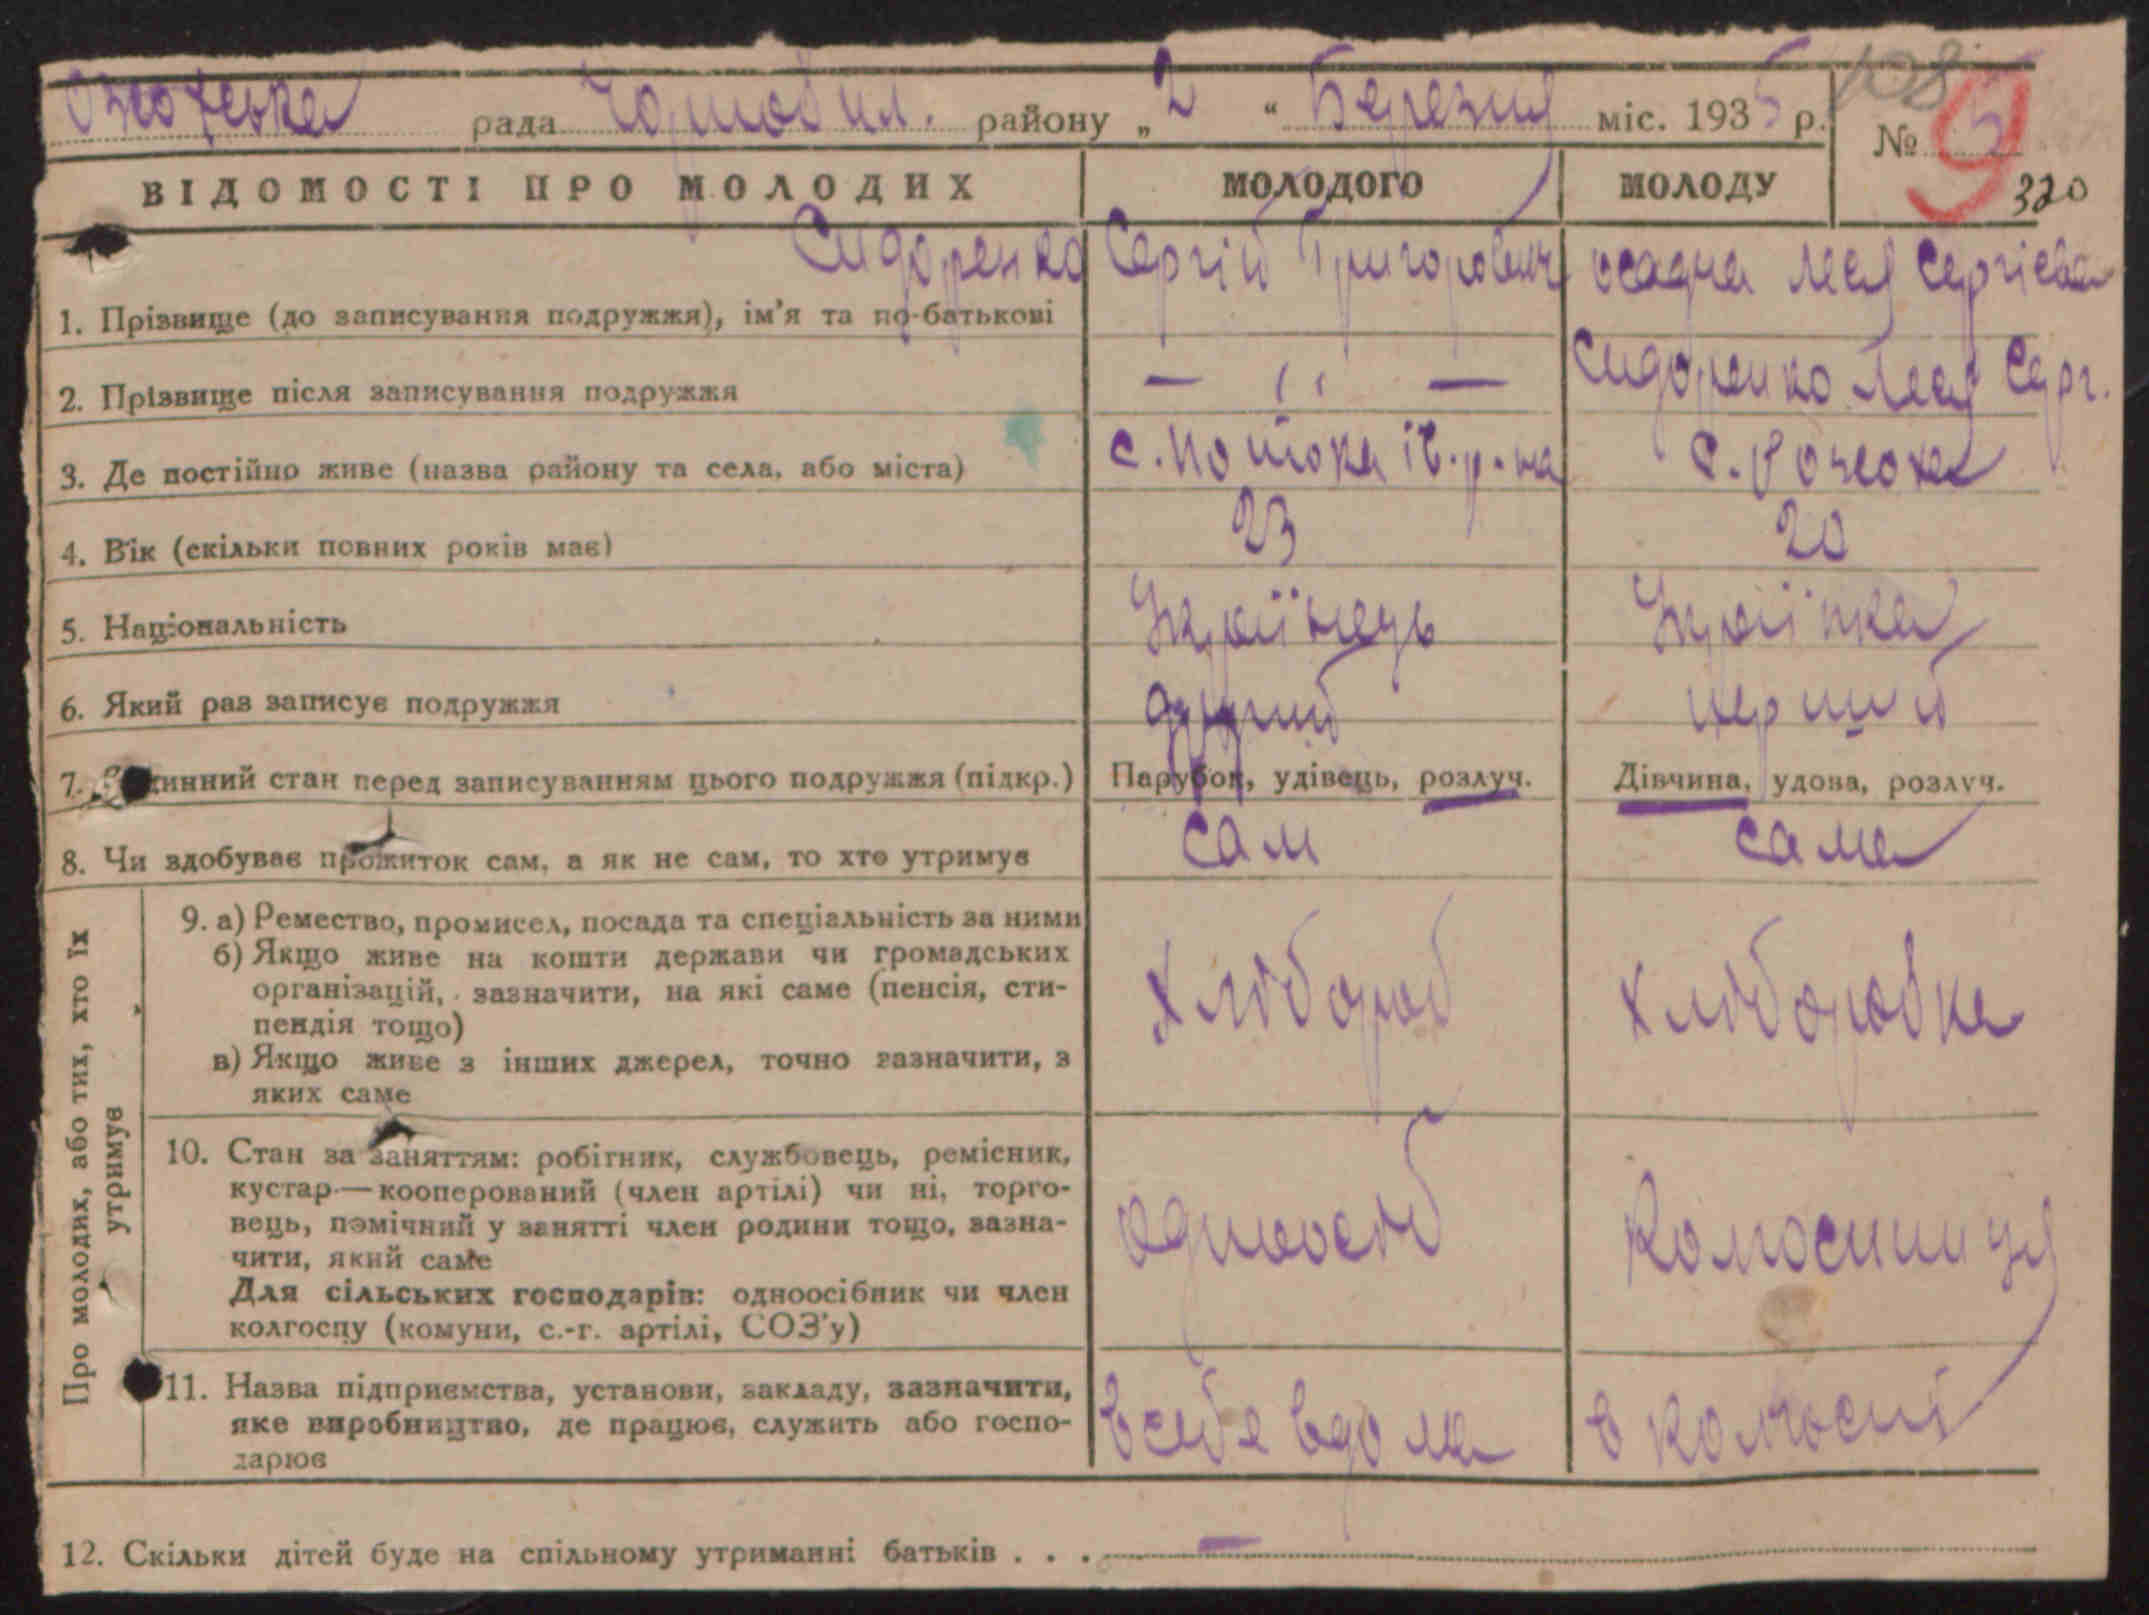 рада Чорнобил. району „ 2 “ Березня міс. 1935 р.
108
№ 9
320
ВІДОМОСТІ ПРО МОЛОДИХ
МОЛОДОГО
МОЛОДУ
Сидоренко Сергій Григорович
осадча Леся Сергієва
1. Прізвище (до записування подружжя), ім'я та по-батькові
2. Прізвище після записування подружжя
— ״ —
Сидоренко Леся Серг.
3. Де постійно живе (назва району та села, або міста)
с.
с.
4. Вік (скільки повних років має)
23
20
5. Національність
Українець
Українка
6. Який раз записує подружжя
другий
перший
7. Родинний стан перед записуванням цього подружжя (підкр.)
Парубок, удівець, розлуч.
Дівчина, удова, розлуч.
8. Чи здобуває прожиток сам, а як не сам, то хто утримує
сам
сама
Про молодих, або тих, хто їх утримує
9. а) Ремество, промисел, посада та спеціальність за ними
б) Якщо живе на кошти держави чи громадських
організацій, зазначити, на які саме (пенсія, сти-
пендія тощо)
в) Якщо живе з інших джерел, точно зазначити, з
яких саме
хлібороб
хліборобка
10. Стан за заняттям: робітник, службовець, ремісник,
кустар—кооперований (член артілі) чи ні, торго-
вець, помічний у занятті член родини тощо, зазна-
чити, який саме
Для сільських господарів: одноосібник чи член
колгоспу (комуни, с.-г. артілі, СОЗ'у)
одноосіб
Колгоспниця
11. Назва підприємства, установи, закладу, зазначити,
яке виробництво, де працює, служить або госпо-
дарює
в себе вдома
в колгоспі
12. Скільки дітей буде на спільному утриманні батьків . . . —